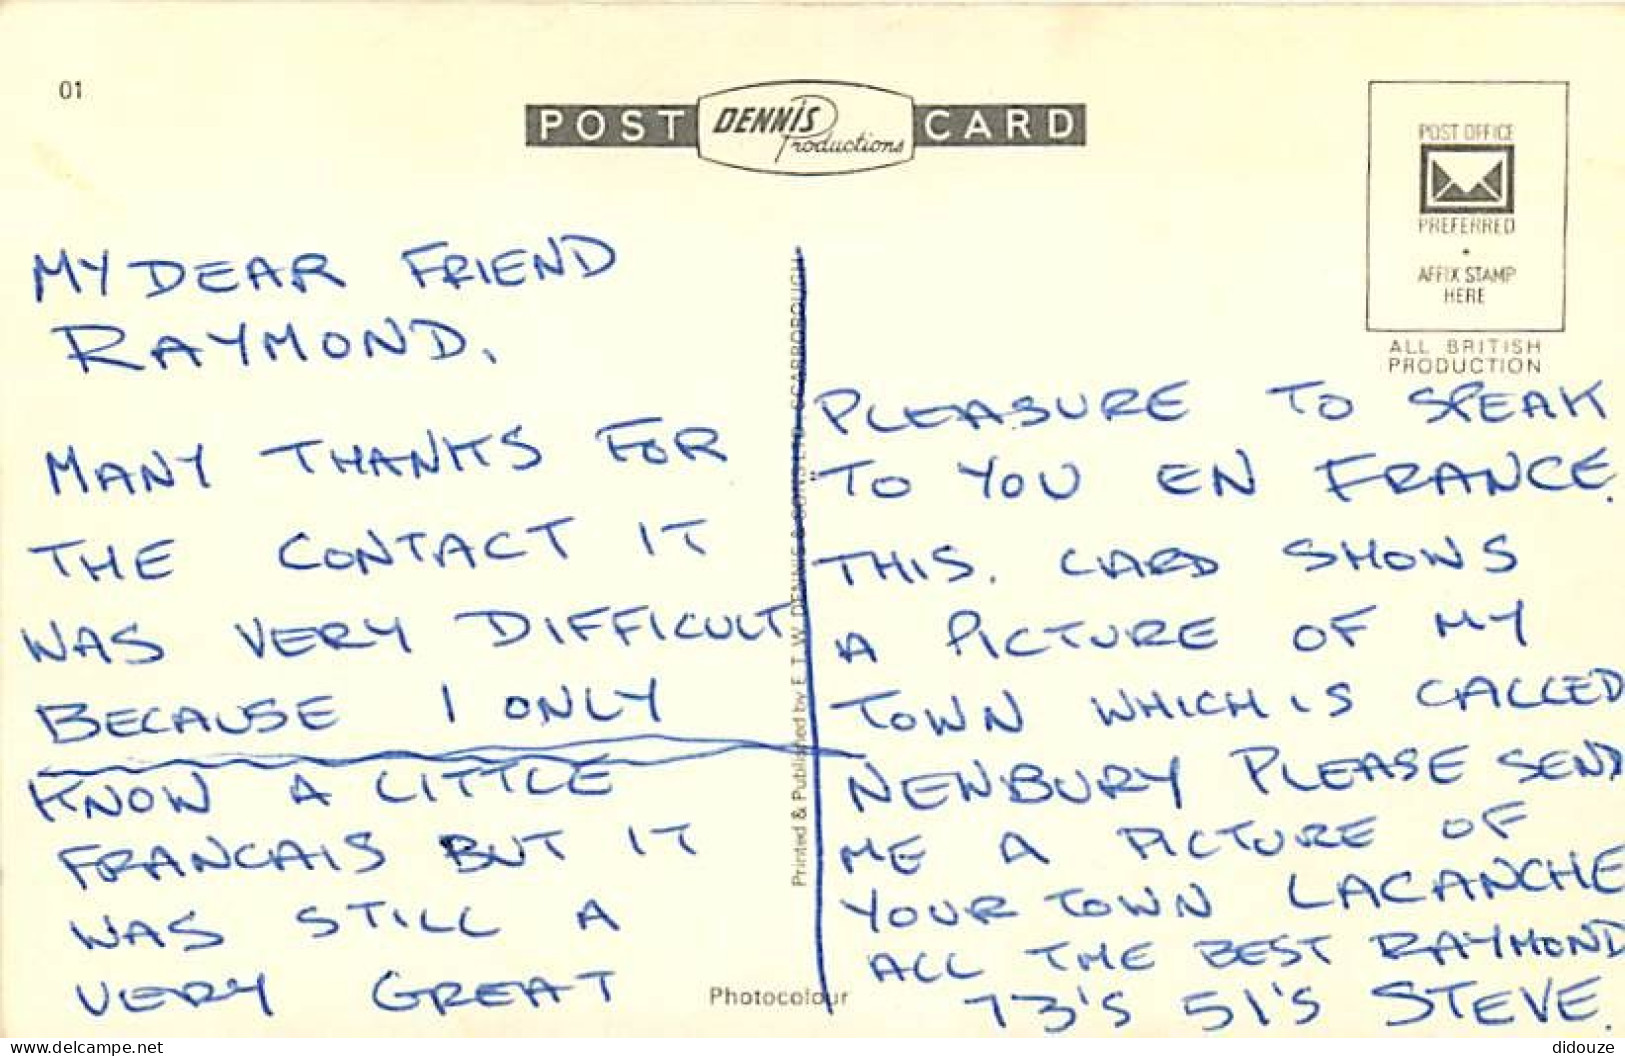 01
POST DENNIS Productions CARD
POST OFFICE
PREFERRED
AFFIX STAMP
HERE
ALL BRITISH
PRODUCTION
MY DEAR FRIEND
RAYMOND.
MANY THANKS FOR
THE CONTACT IT
WAS VERY DIFFICULT
BECAUSE I ONLY
KNOW A LITTLE
FRANCAIS BUT IT
WAS STILL A
VERY GREAT
Printed & Published by E.T.W. DENNIS & SONS LTD., SCARBOROUGH
Photocolour
PLEASURE TO SPEAK
TO YOU EN FRANCE.
THIS. CARD SHOWS
A PICTURE OF MY
TOWN WHICH IS CALLED
NEWBURY PLEASE SEND
ME A PICTURE OF
YOUR TOWN LACANCHE
ALL THE BEST RAYMOND
73'S 51'S STEVE.
www.delcampe.net
didouze